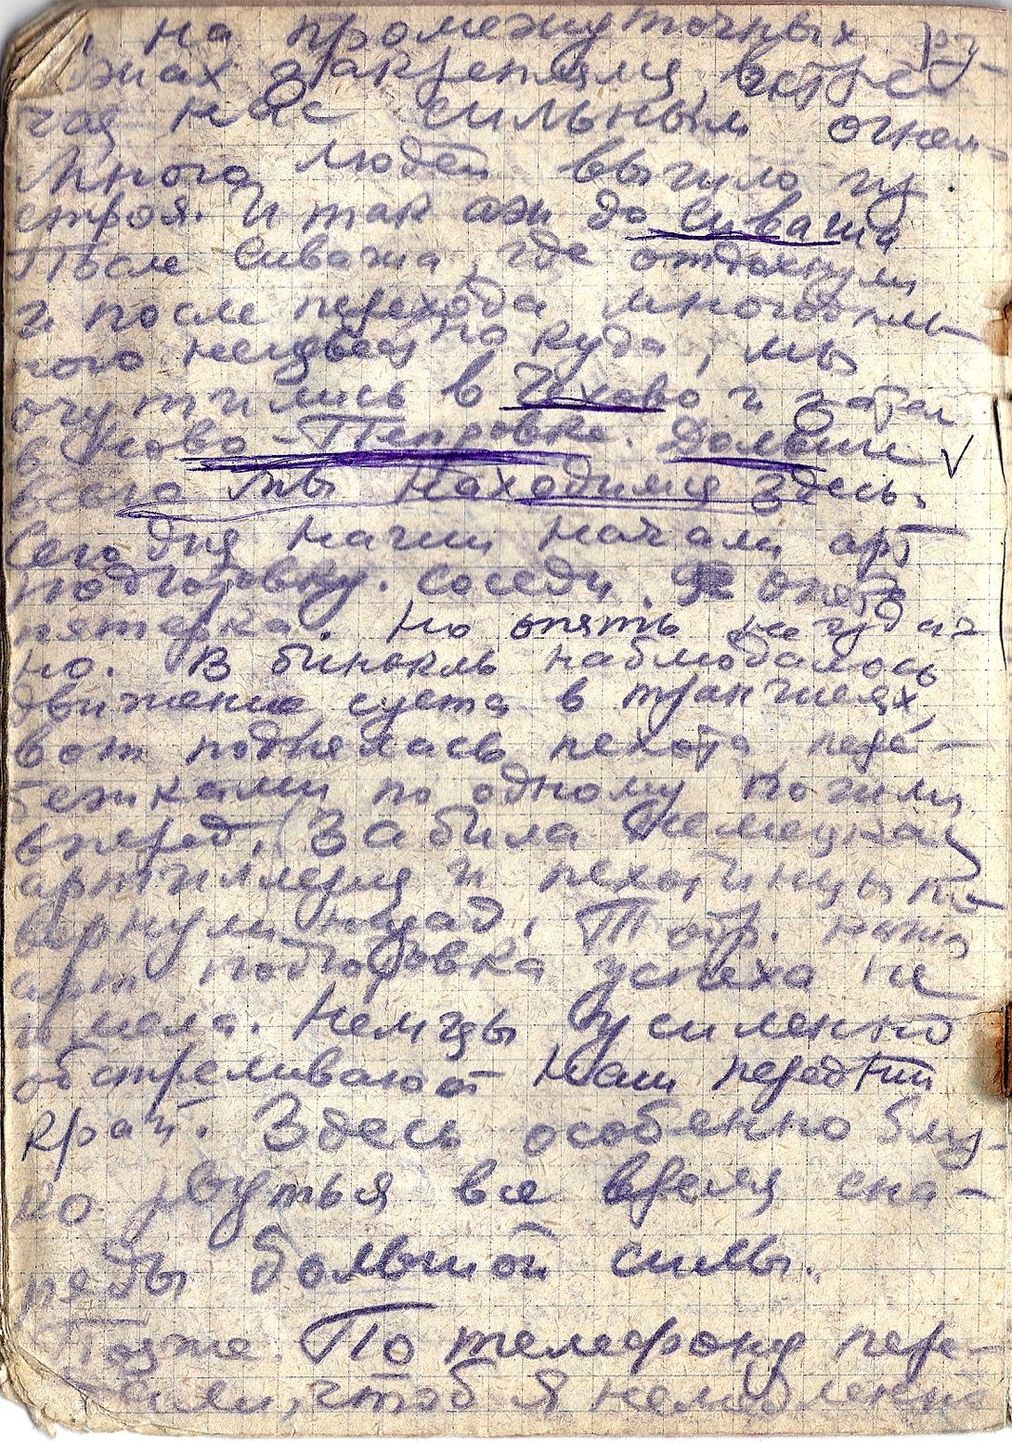 , на промежуточных ру-
бежах закрепляли, встре
чая нас сильным огнем.
Много людей выбыло из
строя. И так аж до Сиваша
После Сиваша, где отдохнули
и после перехода многоднев-
ного неизвестно куда, мы
очутились в Чехово и затем
в Ново-Петровке. Дольше
всего мы находимся здесь.
Сегодня наши начали арт
подготовку. Соседи. опять
пятерка. Но опять неудач
но. В бинокль наблюдалось
движение суета в траншеях,
вот поднялась пехота, пере-
бежками по одному пошли
вперед. Забила немецкая
артиллерия и пехотинцы по-
вернули назад. Т обр. наша
арт подготовка успеха не
имела. Немцы усиленно
обстреливают наш передний
край. Здесь особенно близ-
ко. рвутья все время сна-
ряды большой силы.
Позже. По телефону пере-
дали, чтоб я немедленно